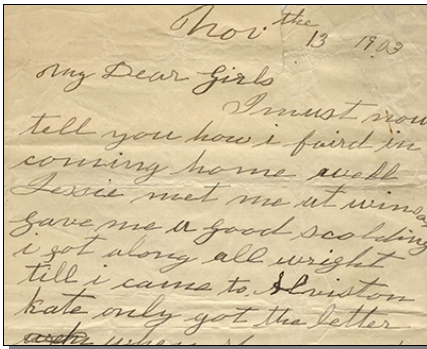 Nov the 13 1903
My Dear Girls
I must now
tell you how i faird in
coming home well
Jessie met me at winds
gave me a good scolding
i got along all wright
till i came to Alviston
kate only got the letter
when